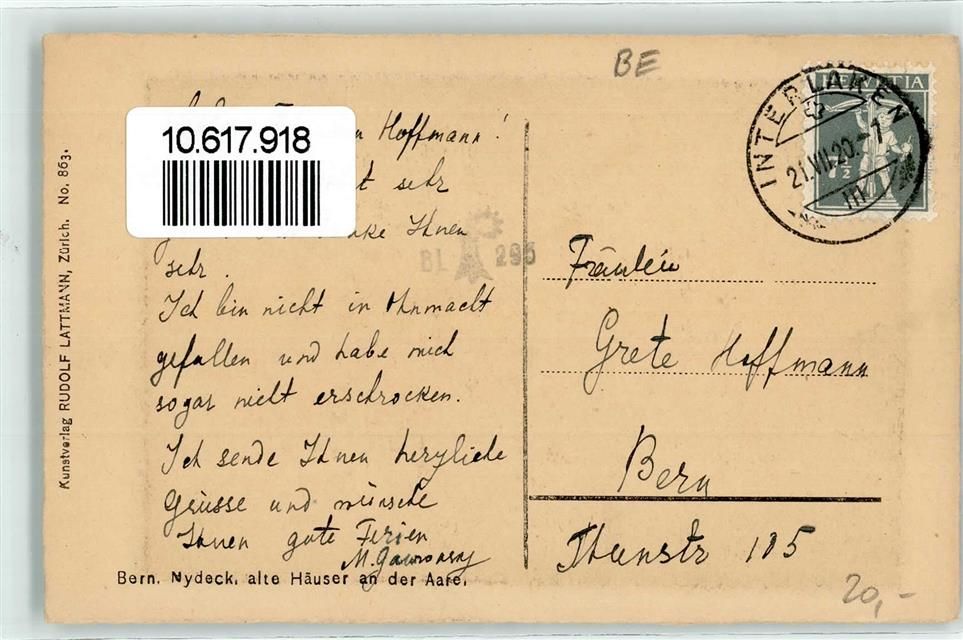 BE
Hoffmann!
10.617.918
sehr
Ihnen
sehr.
Ich bin nicht in Ohnmacht
gefallen und habe mich
sogar nicht erschrocken.
Ich sende Ihnen herzliche
Grüsse und wünsche
Ihnen gute Ferien
Bern. Nydeck, alte Häuser an der Aare.
Kunstverlag RUDOLF LATTMANN, Zürich. No. 863.
295
HELVETIA
INTERLAKEN
21.VII.20.-7
7 1/2
Fräulein
Grete Hoffmann
Bern
Thunstr 105
20,-